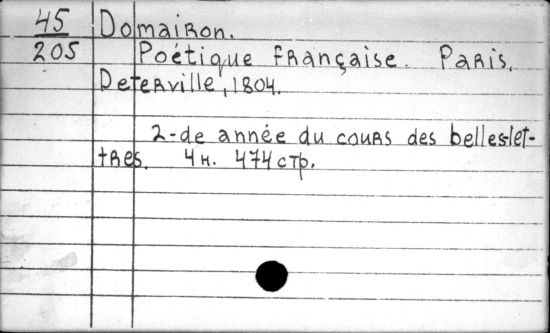 45
205
Domairon.
Poétique française. Paris,
Deterville, 1804.
2-de année du cours des belles-let-
tres. 4н. 474 стр.